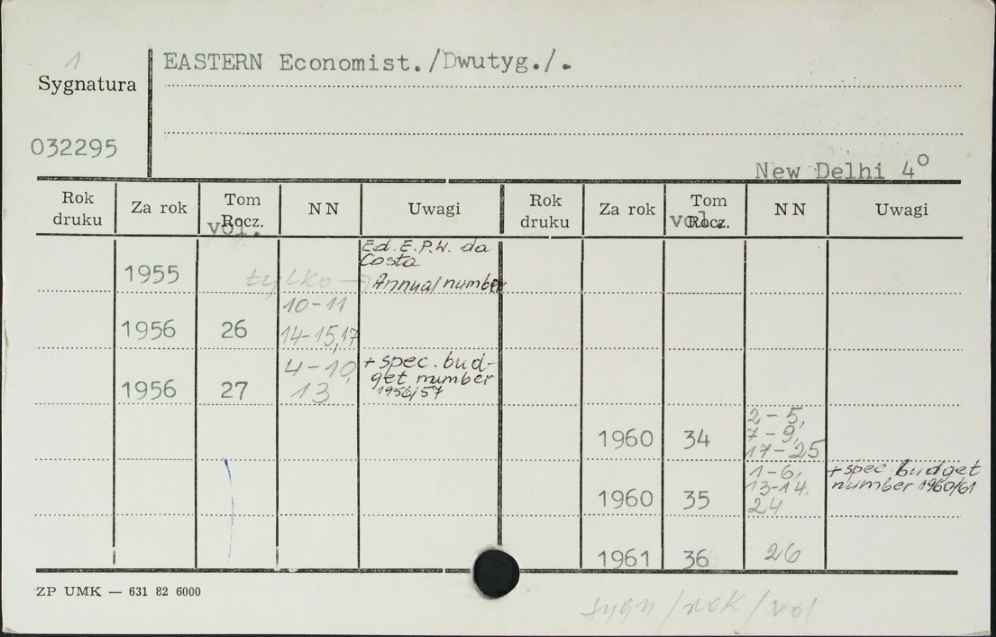 1
Sygnatura
032295
EASTERN Economist./Dwutyg./.
New Delhi 4°
Rok druku Za rok Tom Rocz. vol. NN Uwagi Rok druku Za rok Tom Rocz. vol. NN Uwagi
Ed. E.P.W. da
Costa
1955 tylko → Annual number
10-11
1956 26 14-15,17
4-10, + spec. bud-
get number
1956 27 13 1956/57
2-5,
1960 34 7-9,
17-25
1-6, + spec budget
13-14. number 1960/61
1960 35 24
1961 36 26
ZP UMK — 631 82 6000
sygn/rok/vol